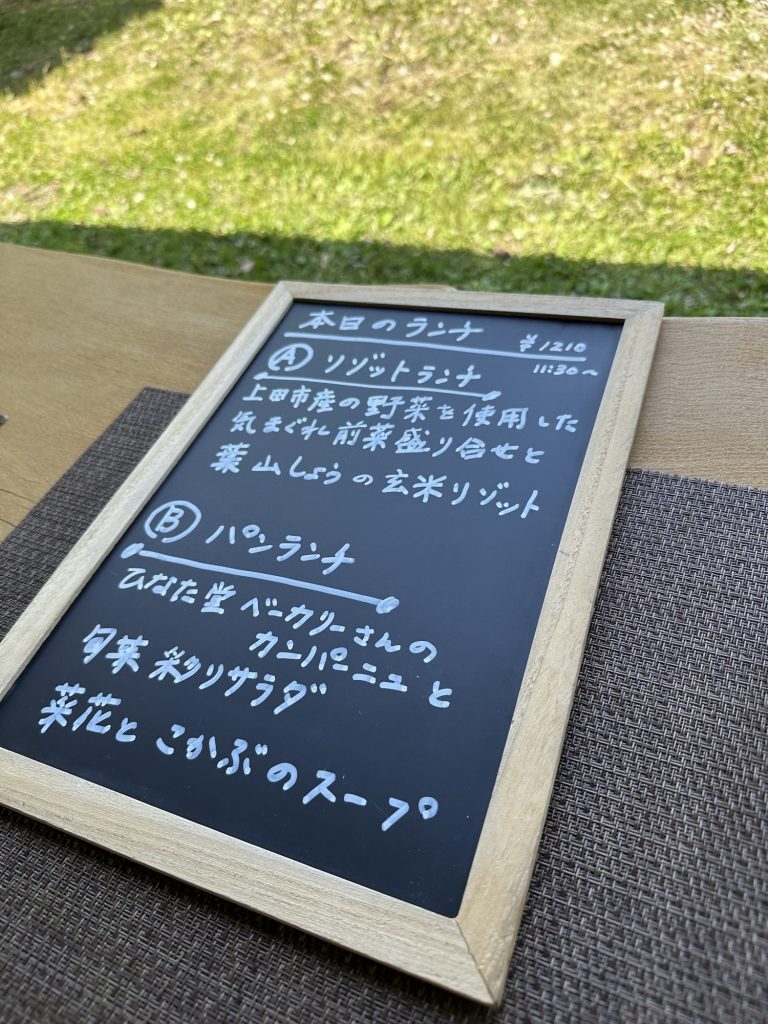 本日のランチ ¥1210
11:30~
Ⓐ リゾットランチ
上田市産の野菜を使用した
気まぐれ前菜盛り合せと
葉山しょうの玄米リゾット
Ⓑ パンランチ
ひなた堂 ベーカリーさんの
カンパーニュと
旬菜 彩りサラダ
菜花と こかぶのスープ